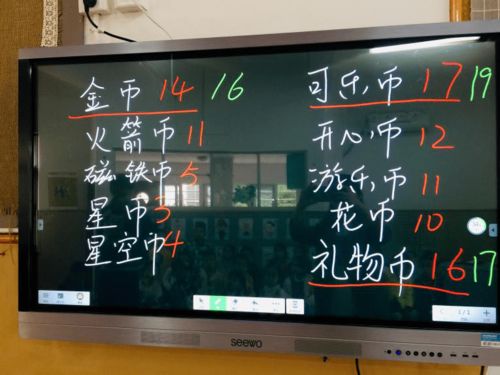 金币 14 16
火箭币 11
磁铁币 5
星币 3
星空币 4
可乐币 17 19
开心币 12
游乐币 11
花币 10
礼物币 16 17
1/1
seewo